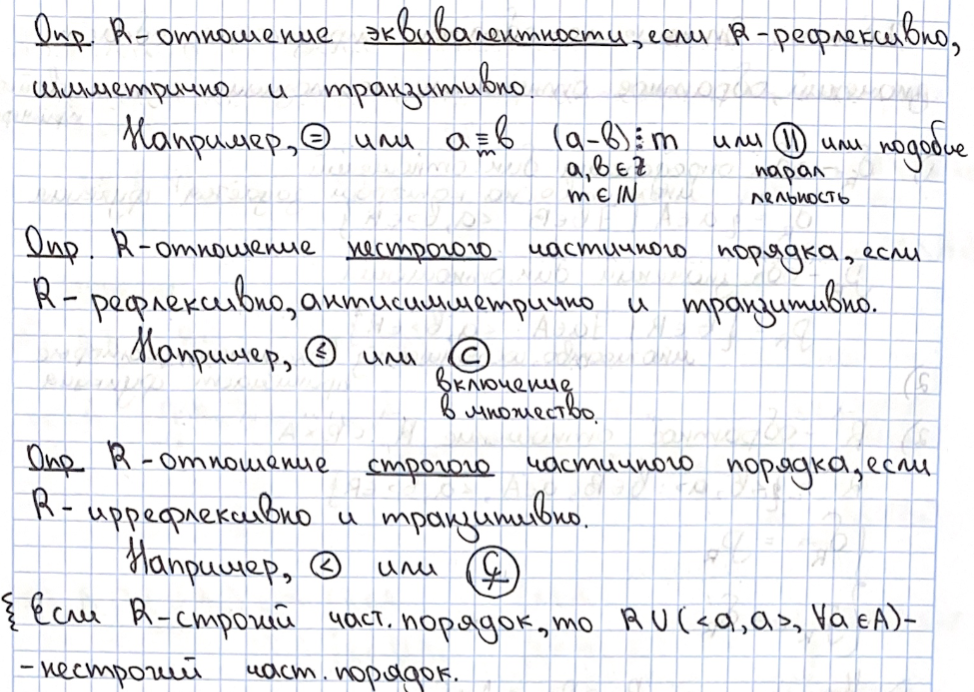 Опр. R-отношение эквивалентности, если R-рефлексивно,
симметрично и транзитивно.
Например, = или a ≡ b (a-b)⋮m или || или подобие
m a,b ∈ ℤ парал
m ∈ ℕ лельность
Опр. R-отношение нестрогого частичного порядка, если
R- рефлексивно, антисимметрично и транзитивно.
Например, ≤ или ⊂
включение
в множество.
Опр R-отношение строгого частичного порядка, если
R-иррефлексивно и транзитивно.
Например, < или ⊊
{ Если R-строгий част. порядок, то R∪(<a,a>, ∀a∈A)-
-нестрогий част. порядок.